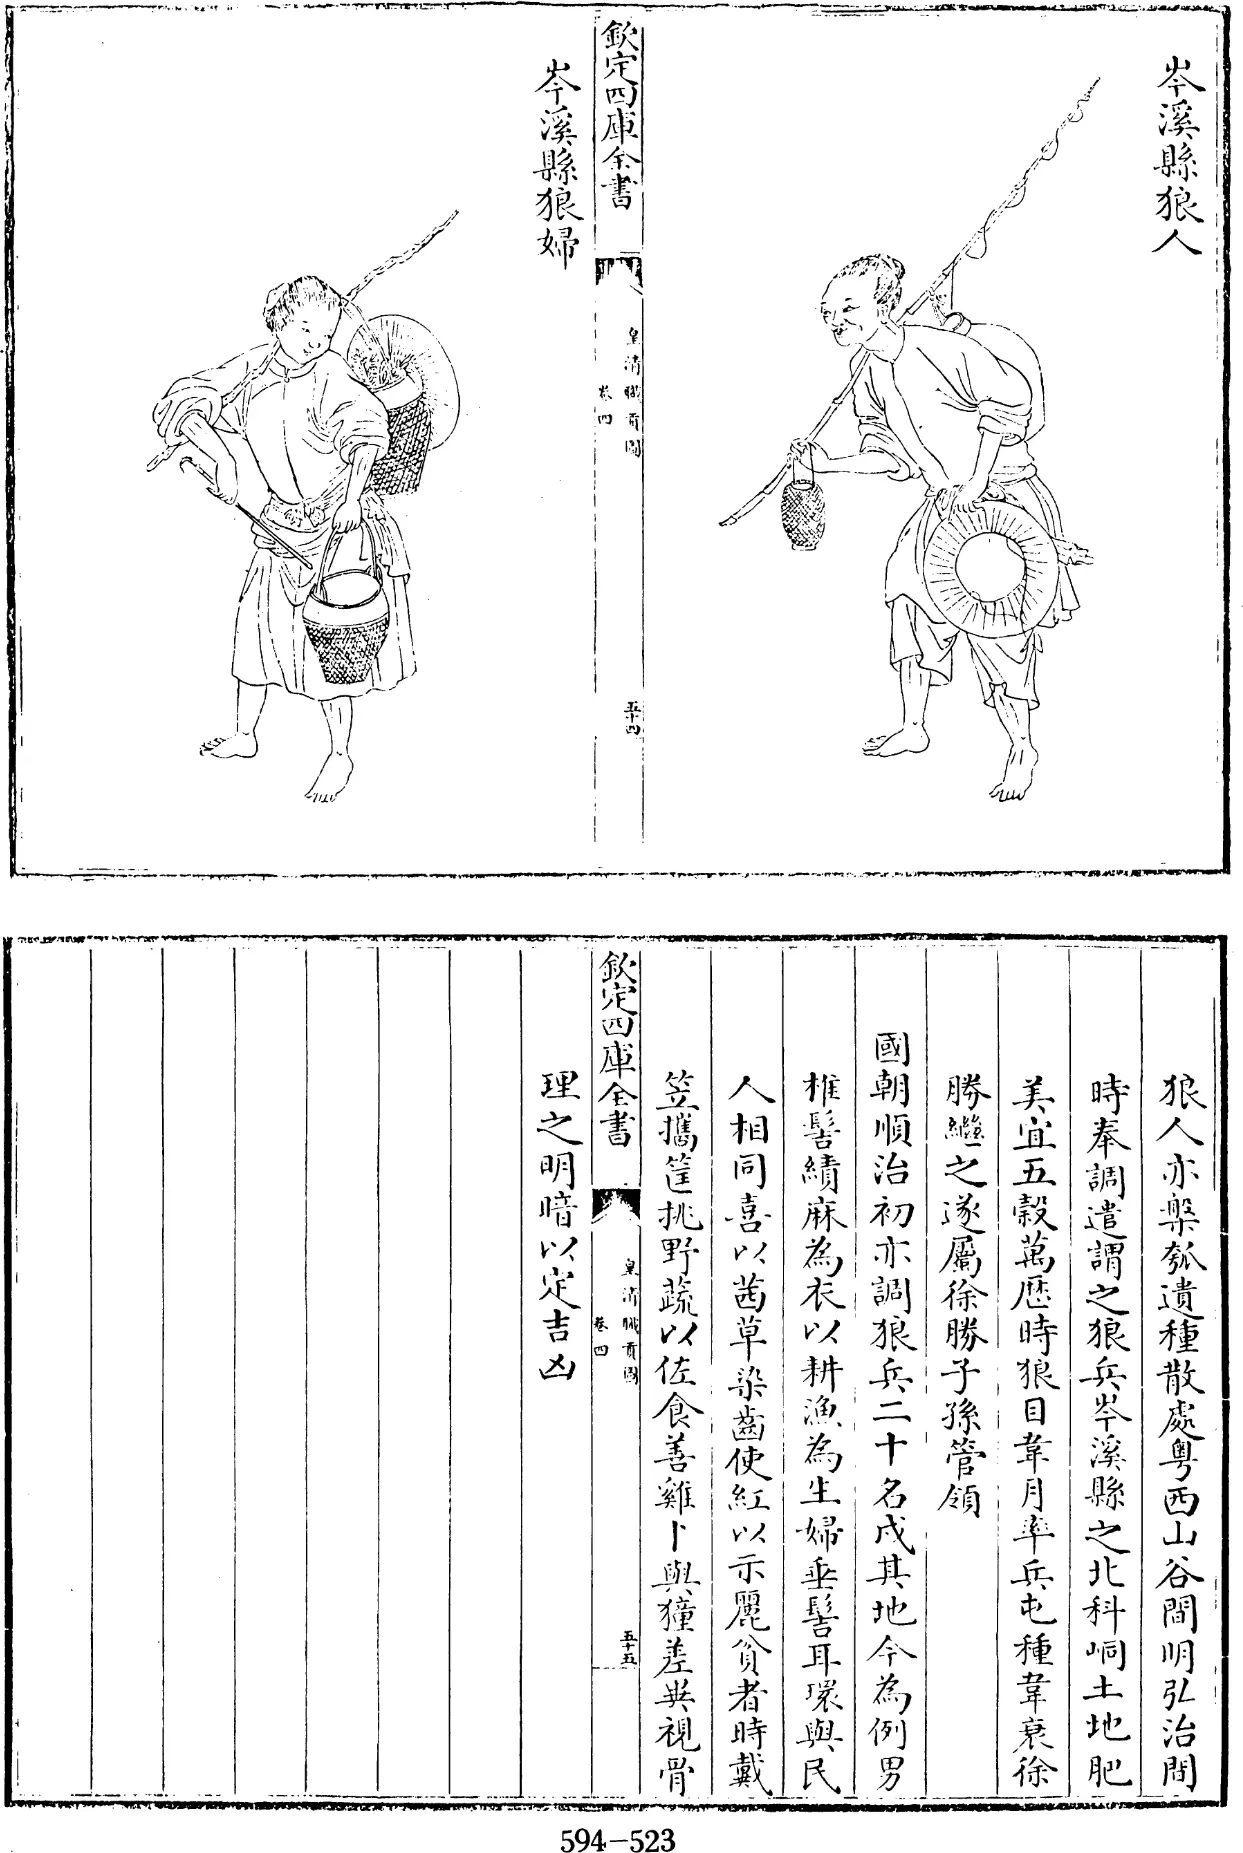 岑溪縣狼人
欽定四庫全書
皇清職貢圖
卷四
五十四
岑溪縣狼婦
狼人亦槃瓠遺種散處粵西山谷間明弘治間
時奉調遣謂之狼兵岑溪縣之北科峒土地肥
美宜五穀萬歷時狼目韋月率兵屯種韋衰徐
勝繼之遂屬徐勝子孫管領
國朝順治初亦調狼兵二十名戍其地今為例男
椎髻績麻為衣以耕漁為生婦垂髻耳環與民
人相同喜以茜草染齒使紅以示麗貧者時戴
笠攜筐挑野蔬以佐食善雞卜與獞差異視骨
欽定四庫全書
皇清職貢圖
卷四
五十五
理之明暗以定吉凶
594-523